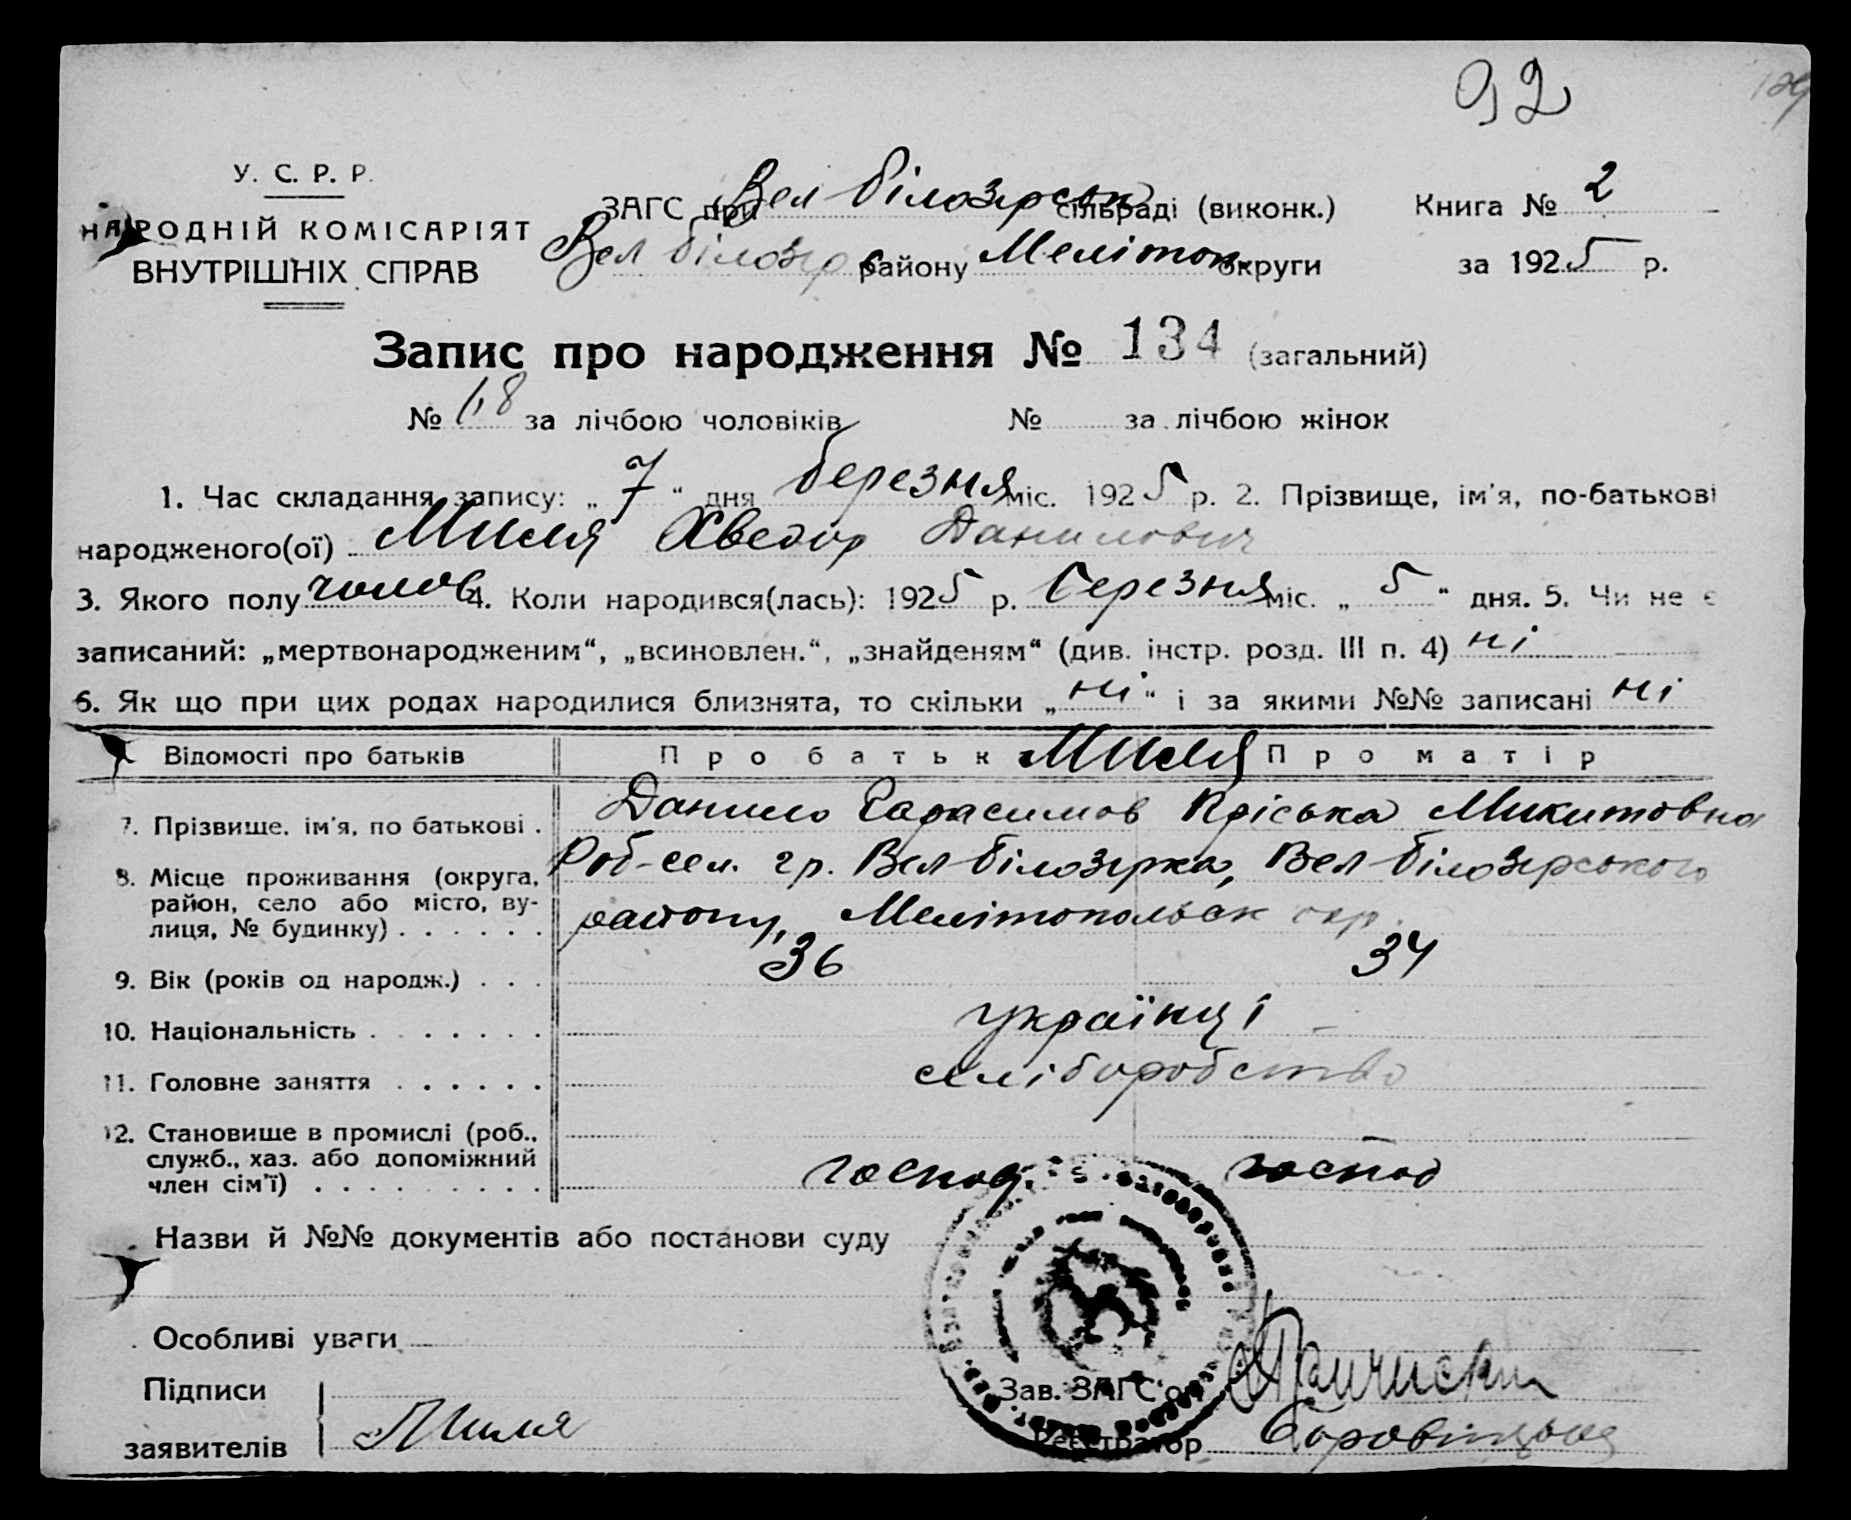 92
129
У. С. Р. Р.
НАРОДНІЙ КОМІСАРІЯТ
ВНУТРІШНІХ СПРАВ
ЗАГС при Вел Білозерськ сільраді (виконк.)
Вел Білозер району Мелітоп. округи
Книга № 2
за 1925 р.
Запис про народження № 134 (загальний)
№ 68 за лічбою чоловіків № за лічбою жінок
1. Час складання запису: „7“ дня березня міс. 1925 р. 2. Прізвище, ім'я, по-батькові
народженого(ої) Миля Хведор Данилович
3. Якого полу чолов 4. Коли народився(лась): 1925 р. березня міс. „5“ дня. 5. Чи не є
записаний: „мертвонародженим“, „всиновлен.“, „знайденям“ (див. інстр. розд. III п. 4) ні
6. Як що при цих родах народилися близнята, то скільки „ні“ і за якими №№ записані ні
Відомості про батьків Про батьк Миля Про матір
7. Прізвище, ім'я, по батькові . Данило Гарасимов Пріська Микитовна
8. Місце проживання (округа, район, село або місто, вулиця, № будинку) . . . . . . Роб-сел. гр. Вел Білозерка, Вел Білозерського
району, Мелітопольськ окр.
9. Вік (років од народж.) . . . 36 34
10. Національність . . . . . . . українці
11. Головне заняття . . . . . . селіборобство
12. Становище в промислі (роб., служб., хаз. або допоміжний член сім'ї) . . . . . . . . . господ. господ
Назви й №№ документів або постанови суду
Особливі уваги
Підписи
заявителів Миля
Зав. ЗАГС'ом
Реєстратор